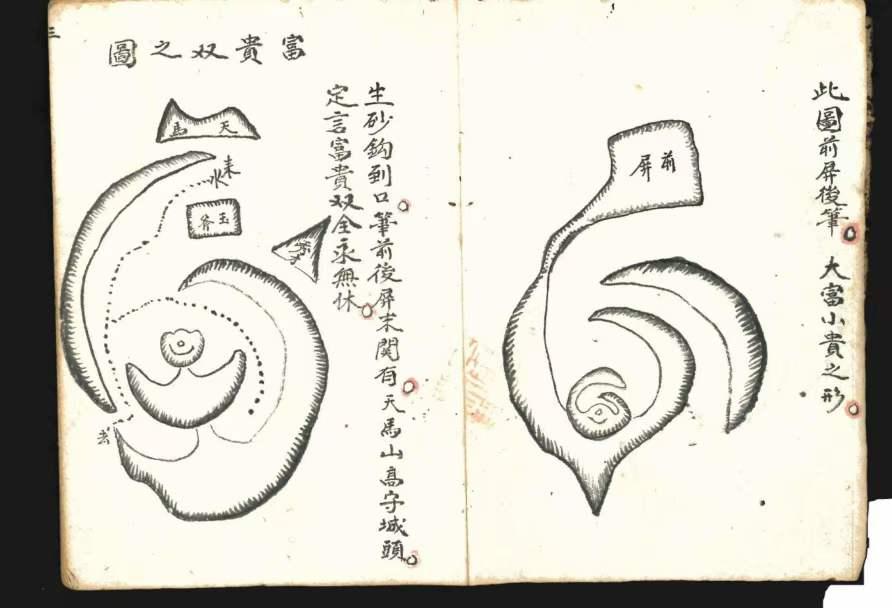 此圖前屏後筆 大富小貴之形
前屏
富貴双之圖
生砂鈎到口筆前後屏未関有天馬山高守城頭
定言富貴双全永無休
天馬
来水
玉斧
去
三